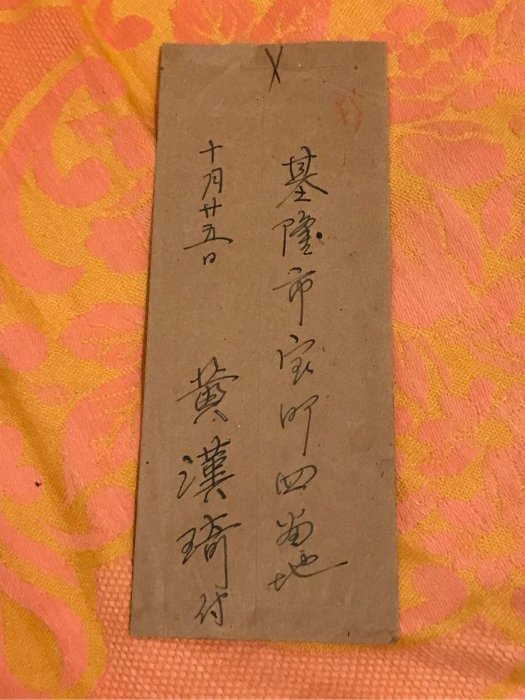 基隆市宝町四番地
十月廿五日
黄漢琦付